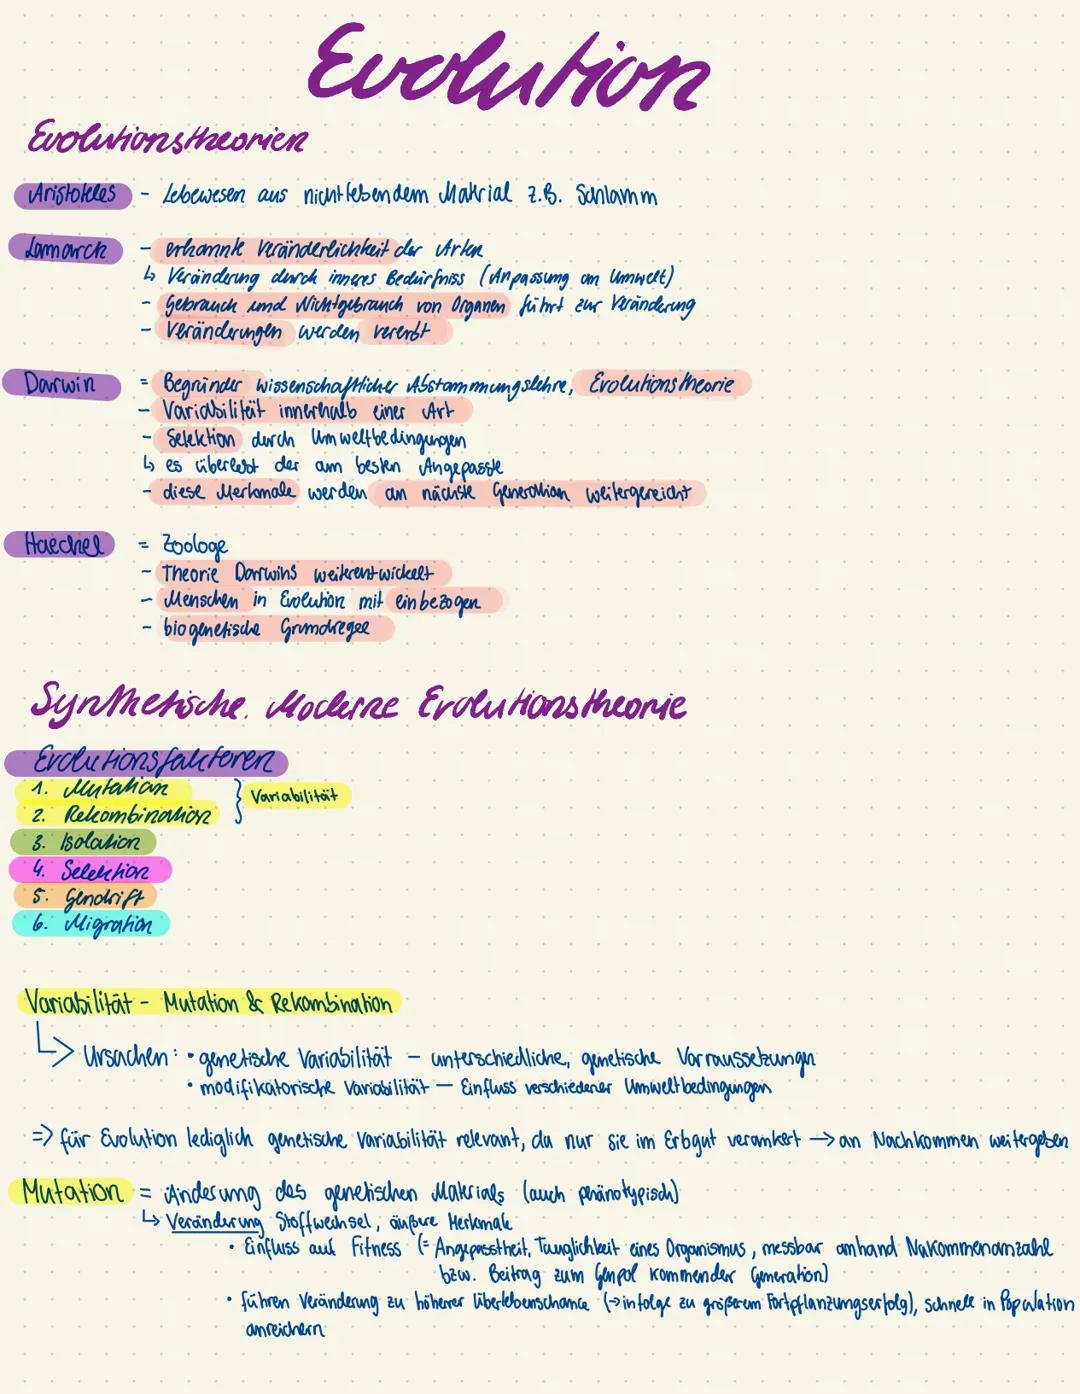 Evolution
Evolutionstheorien
Aristoteles - Lebewesen aus nichtlebendem Material z.B. Schlamm
Lamarck - erkannte Veränderlichkeit der Arten
↳ Veränderung durch inneres Bedürfniss (Anpassung an Umwelt)
- Gebrauch und Nichtgebrauch von Organen führt zur Veränderung
- Veränderungen werden vererbt
Darwin = Begründer wissenschaftlicher Abstammungslehre, Evolutionstheorie
- Variabilität innerhalb einer Art
- Selektion durch Umweltbedingungen
↳ es überlebt der am besten Angepasste
- diese Merkmale werden an nächste Generation weitergereicht
Haeckel = Zoologe
- Theorie Darwins weiterentwickelt
- Menschen in Evolution mit einbezogen
- biogenetische Grundregel
Synthetische. Moderne Evolutionstheorie
Evolutionsfaktoren
1. Mutation
2. Rekombination } Variabilität
3. Isolation
4. Selektion
5. Gendrift
6. Migration
Variabilität - Mutation & Rekombination
↳ Ursachen: • genetische Variabilität - unterschiedliche, genetische Vorraussetzungn
• modifikatorische Variabilität - Einfluss verschiedener Umweltbedingungen
=> für Evolution lediglich genetische Variabilität relevant, da nur sie im Erbgut verankert → an Nachkommen weitergeben
Mutation = Änderung des genetischen Materials (auch phänotypisch)
↳ Veränderung Stoffwechsel, äußere Merkmale
• Einfluss auf Fitness (= Angepasstheit, Tauglichkeit eines Organismus, messbar anhand Nakommenanzahl
bzw. Beitrag zum Genpol kommender Generation)
• führen Veränderung zu höherer Überlebenschance (→ infolge zu größerem Fortpflanzungserfolg), schnell in Population
anreichern